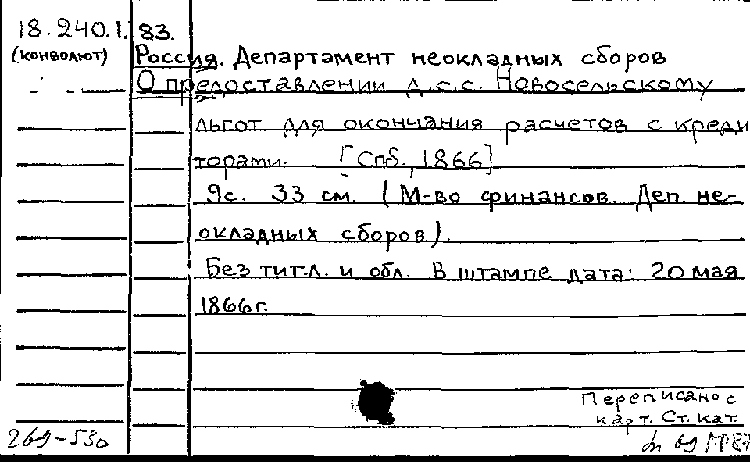 18.240.1. 83.
(конволют)
Россия. Департамент неокладных сборов
О предоставлении д.с.с. Новосельскому
льгот для окончания расчетов с креди
торами. [Спб., 1866]
9с. 33 см. (М-во финансов. Деп. не-
окладных сборов).
Без тит.л. и обл. В штампе дата: 20 мая
1866г.
Переписано с
карт. Ст. кат.
269-530